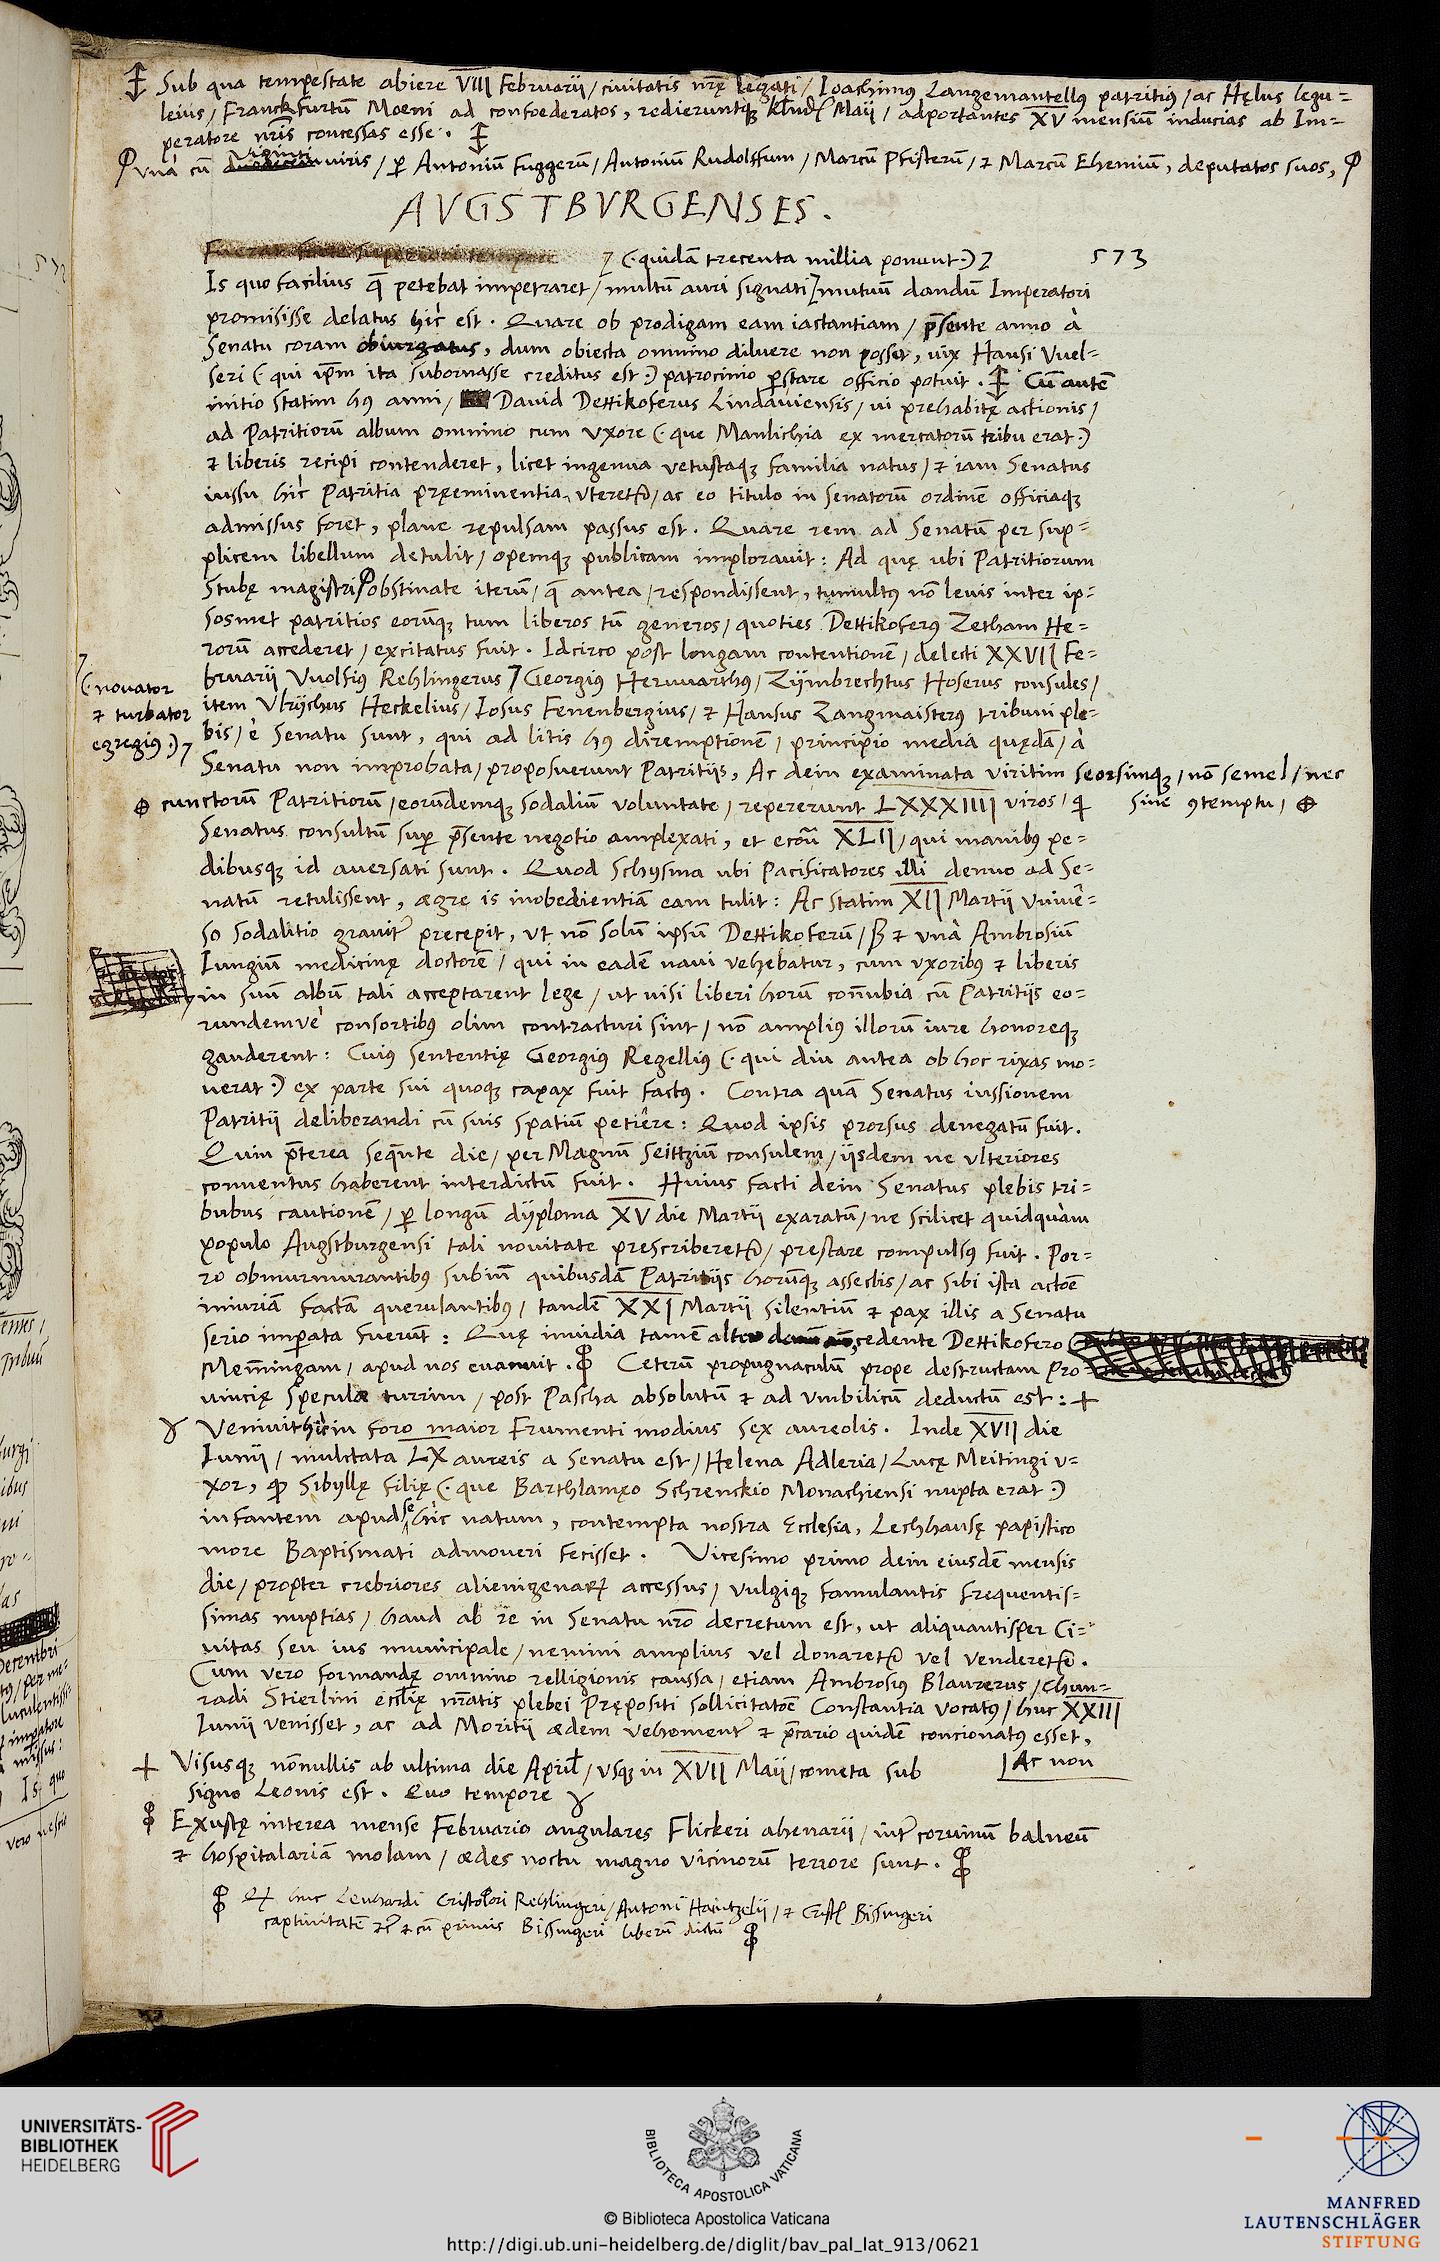 Sub qua tempestate abiere VIII Februarii / ciuitatis nr̃ę legati / Ioachimus Langemantellus patritius / ac Hęlus legu=
leius / Franckfurtũ Moeni ad confoederatos, redieruntqȝ Maij / adportantes XV mensiũ inducias ab Im=
peratore nr̃is concessas esse.
vnà cũ viginti viris / ꝑ Antoniũ Fuggerũ / Antoniũ Rudolffum / Marcũ Pfisterũ / & Marcũ Ehemiũ, deputatos suos,
AVGSTBVRGENSES.
(· quidã trecenta millia ponunt ·) 573
Is quo facilius q̃ petebat impetraret / multũ auri signati / mutuũ dandũ Imperatori
promisisse delatus hîc est. Quare ob prodigam eam iactantiam / p̃sente anno à
Senatu coram obiurgatus, dum obiecta omnino diluere non posset, vix Hansi Vuel=
seri (· qui ip̃m ita subornasse creditus est ·) patrocinio p̱stare officio potuit. Cũ autẽ
initio statim hꝰ anni / David Dettikoferus Lindauiensis / vi prehabitę actionis /
ad Patritiorũ album omnino cum vxore (· que Manlichia ex mercatorũ tribu erat ·)
& liberis recipi contenderet, licet ingenua vetustaqȝ familia natus / & iam Senatus
iussu hîc Patritia pręeminentia vteret̃ / ac eo titulo in senatorũ ordinẽ officiaqȝ
admissus foret, plane repulsam passus est. Quare rem ad Senatũ per sup=
plicem libellum detulit / opemqȝ publicam implorauit: Ad quę vbi Patritiorum
Stubę magistri obstinate iterũ / q̃ antea / respondissent, tumultꝰ nõ leuis inter ip=
sosmet patritios eorũqȝ tum liberos tũ generos / quoties Dettikoferꝰ Zetham He=
rorũ accederet / excitatus fuit. Idcirco post longam contentionẽ / delecti XXVII Fe=
bruarij Vuolfiꝰ Rehlingerus / Georgius Heruuarthꝰ / Zijmbrechtus Hoserus consules /
(· nouator
& turbator
egregiꝰ ·)
item Vlrÿchus Heckelius / Iosus Fenenbergius / & Hansus Zangmaisterꝰ tribuni ple=
bis / è Senatu sunt, qui ad litis hꝰ diremptionẽ / principio media quędã / à
Senatu non improbata / proposuerunt Patritijs, Ac dein examinata viritim seorsimqȝ / nõ semel / nec
cunctorũ Patritiorũ / eorũdemqȝ sodaliũ voluntate / repererunt LXXXIIII viros / q̃ sine ꝯtemptu /
Senatus consultũ suꝑ p̃sente negotio amplexati, et XLII / qui manibꝰ pe=
dibusqȝ id auersati sunt. Quod Schysma ubi Pacificatores illi denuo ad Se=
natũ retulissent, ægre is inobedientiã eam tulit: Ac statim XII Martij Vniuer=
so sodalitio grauit̃ precepit, vt nõ solũ ipsũ Dettikoferũ / & vnà Ambrosiũ
Iungiũ medicinę doctorẽ / qui in eadẽ naui vehebatur, cum vxoribꝰ & liberis
in suũ albũ tali acceptarent lege / ut nisi liberi horũ cõnubia cũ Patritijs eo=
rundemvè consortibꝰ olim contracturi sint / nõ ampliꝰ illorũ iure honoreqȝ
gauderent: Cuiꝰ sententię Georgiꝰ Regelliꝰ (· qui diu antea ob hoc rixas mo=
uerat ·) ex parte sui quoqȝ capax fuit factꝰ. Contra quã Senatus iussionem
Patritij deliberandi cũ suis spatiũ petiêre: Quod ipsis prorsus denegatũ fuit.
Quin p̃terea seq̃nte die / per Magnũ Seittziũ consulem / ijsdem ne vlteriores
conuentus haberent interdictũ fuit. Huius facti dein Senatus plebis tri=
bubus cautionẽ / ꝑ longũ dyploma XV die Martij exaratũ / ne scilicet quidquàm
populo Augstburgensi tali nouitate prescriberet̃ / prestare compulsꝰ fuit. Por=
ro obmurmurantibꝰ subiũ quibusdã Patritijs horũqȝ asseclis / ac sibi ista actõe
iniuriã factã querulantibꝰ / tandẽ XXI Martij silentiũ & pax illis a Senatu
serio imꝑata fuerũt: Quę inuidia tamẽ cedente Dettikofero
Mem̃ingam / apud nos euanuit. Ceterũ propugnaculũ prope destructam Pro=
uincię speculæ turrim / post Pascha absolutũ & ad vmbilicũ deductũ est: +
Veniuit hîc in foro maior Frumenti modius sex aureolis. Inde XVII die
Iunij / mulctata LX aureis a Senatu est / Helena Adleria / Lucę Meitingi v=
xor, ꝙ Sibyllę filię (· que Barthlamęo Schrenckio Monachiensi nupta erat ·)
infantem apud se hîc natum, contempta nostra Ecclesia, Lechhausę papistico
more Baptismati admoueri fecisset. Vicesimo primo dein eiusdẽ mensis
die / propter crebriores alienigenaꝝ accessus / vulgiqȝ famulantis frequentis=
simas nuptias / haud ab re in Senatu nr̃o decretum est, ut aliquantisper Ci=
uitas seu ius municipale / nemini amplius vel donaret̃ vel venderet̃.
Cum vero formandę omnino relligionis caussa / etiam Ambrosius Blaurerus / Chun=
radi Stierlini ęccl̃ię nr̃atis plebei Prępositi sollicitatõe Constantia vocatꝰ / huc XXIII
Iunij venisset, ac ad Moritij ædem vehement̃ & p̃cario quidẽ concionatꝰ esset,
Ac non
+ Visusqȝ nõnullis ab ultima die April̃ / vsqȝ in XVII Maij / cometa sub
signo Leonis est. Quo tempore
Exustę interea mense Februario angulares Flickeri ahenarij / int̃ coruinũ balneũ
& hospitalariã molam / ædes noctu magno vicinorũ terrore sunt.
huc Lenhardi Cristofori Rehlingeri / Antoni Haintzelij / & Cristo Bissingeri
captiuitatẽ & cũ primis Bissingeri liberũ dictũ
UNIVERSITÄTS-
BIBLIOTHEK
HEIDELBERG
BIBLIOTECA APOSTOLICA VATICANA
© Biblioteca Apostolica Vaticana
http://digi.ub.uni-heidelberg.de/diglit/bav_pal_lat_913/0621
MANFRED
LAUTENSCHLÄGER
STIFTUNG